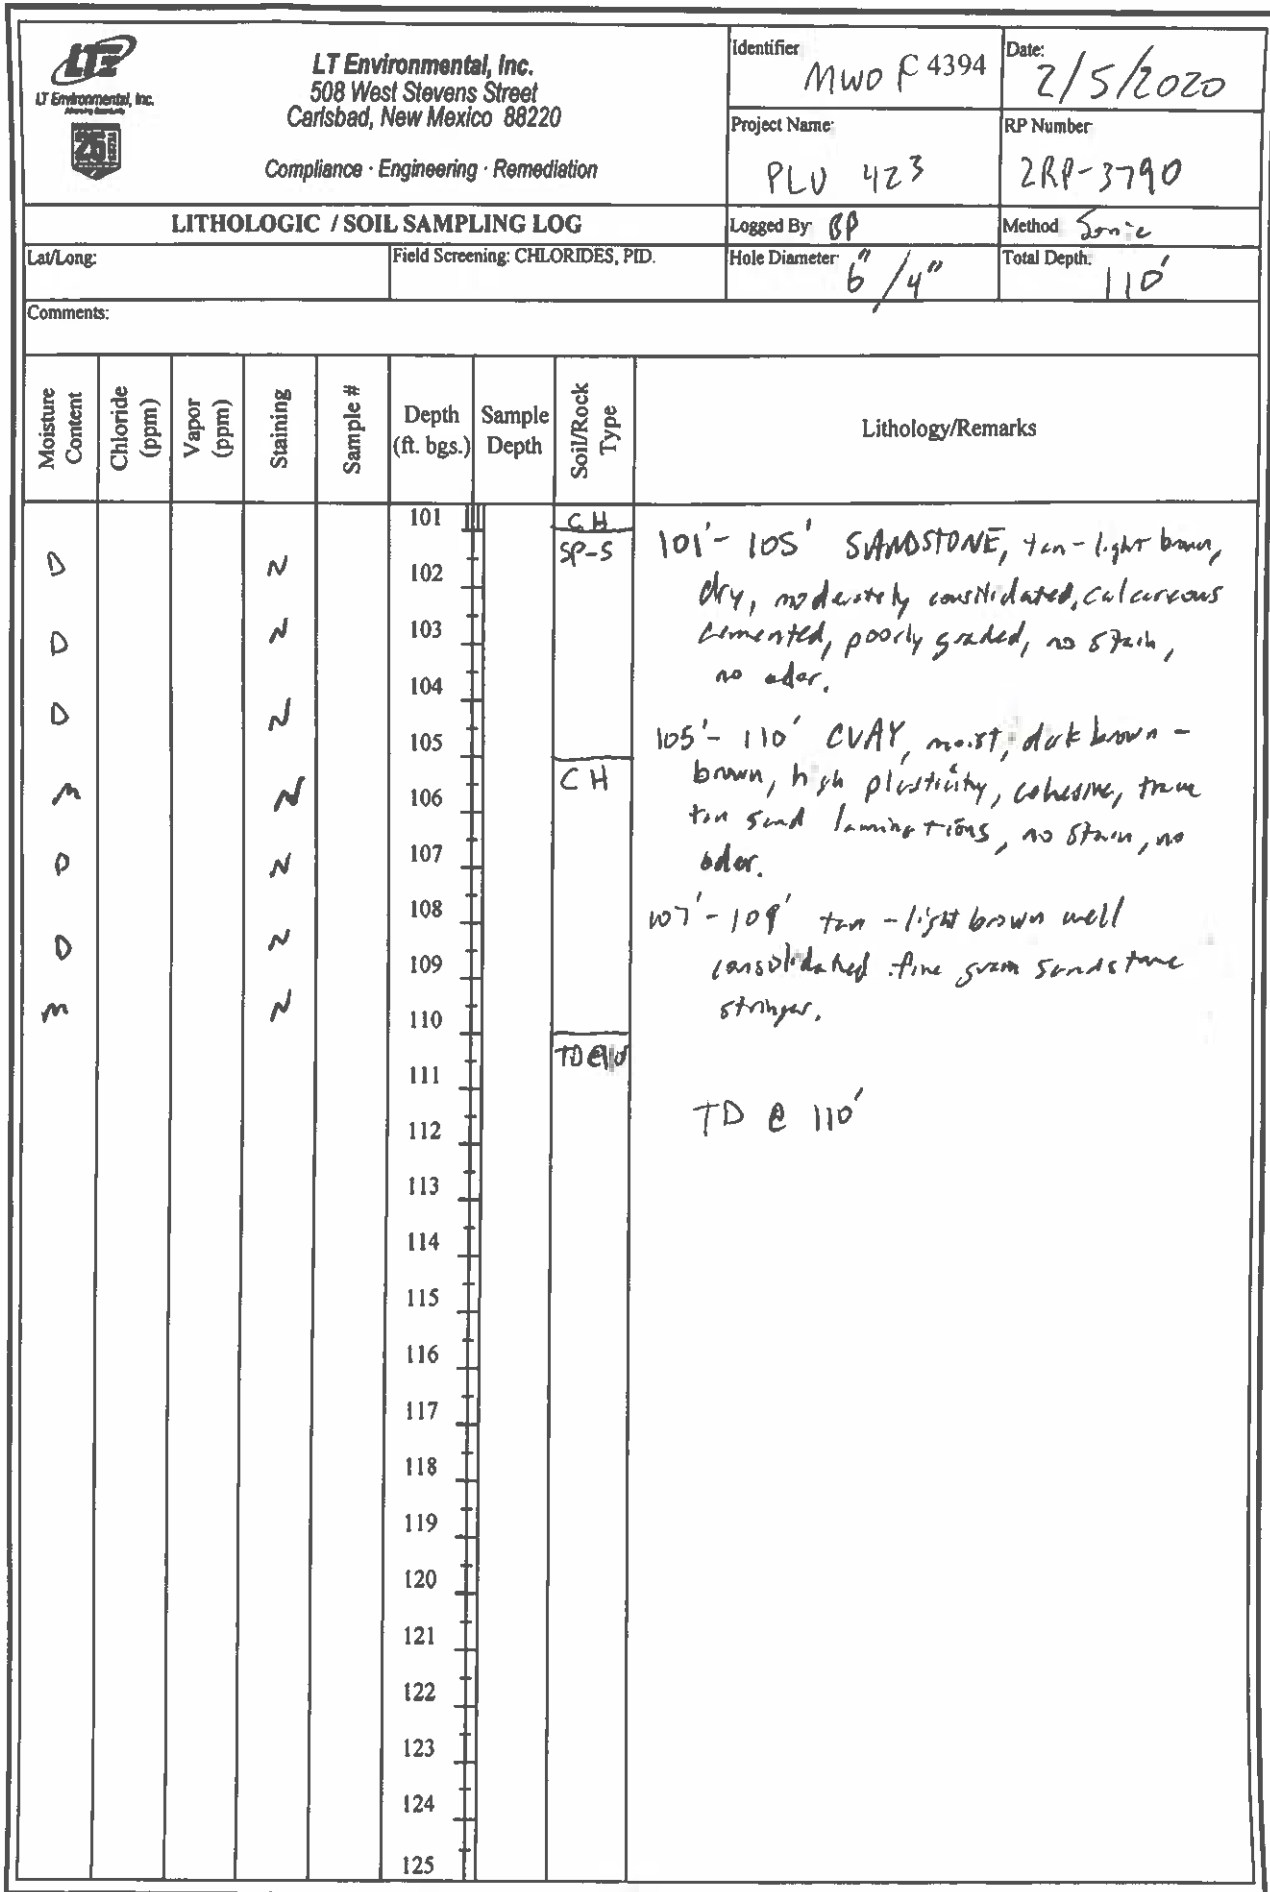 LTE
LT Environmental, Inc.
Advancing Opportunity
LT Environmental, Inc.
508 West Stevens Street
Carlsbad, New Mexico 88220
Compliance · Engineering · Remediation
Identifier
MW0 C 4394
Date:
2/5/2020
Project Name:
PLU 423
RP Number
2RP-3790
LITHOLOGIC / SOIL SAMPLING LOG
Logged By: BP
Method Sonic
Lat/Long:
Field Screening: CHLORIDES, PID.
Hole Diameter: 6"/4"
Total Depth: 110'
Comments:
Moisture Content
Chloride (ppm)
Vapor (ppm)
Staining
Sample #
Depth (ft. bgs.)
Sample Depth
Soil/Rock Type
Lithology/Remarks
101 CH
SP-S 101'-105' SANDSTONE, tan-light brown,
D N 102 dry, moderately consolidated, calcareous
D N 103 cemented, poorly graded, no stain,
104 no odor.
D N
105 105'-110' CLAY, moist, dark brown -
M N 106 CH brown, high plasticity, cohesive, trace
tan sand laminations, no stain, no
D N 107 odor.
108 107'-109' tan-light brown well
D N 109 consolidated fine grain sandstone
M N 110 stringer.
TD@110
111
TD @ 110'
112
113
114
115
116
117
118
119
120
121
122
123
124
125